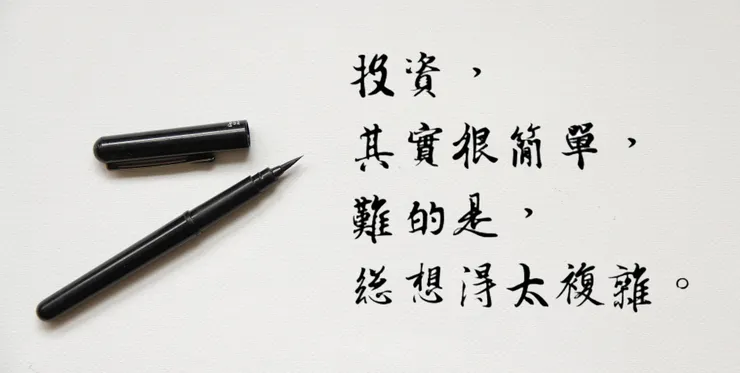 投資，
其實很簡單，
難的是，
總想得太複雜。